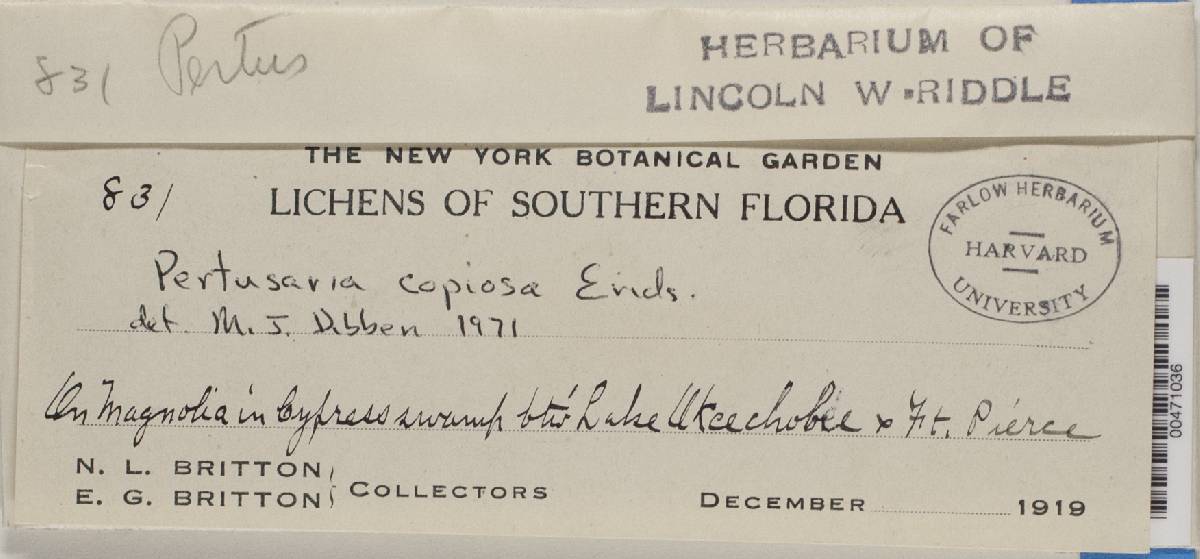 831 Pertus
HERBARIUM OF
LINCOLN W. RIDDLE
THE NEW YORK BOTANICAL GARDEN
831
LICHENS OF SOUTHERN FLORIDA
FARLOW HERBARIUM
HARVARD
UNIVERSITY
Pertusaria copiosa Erichs.
det. M. J. Dibben 1971
On Magnolia in Cypress swamp btw Lake Okeechobee & Ft. Pierce
N. L. BRITTON
E. G. BRITTON
COLLECTORS
DECEMBER 1919
00471036